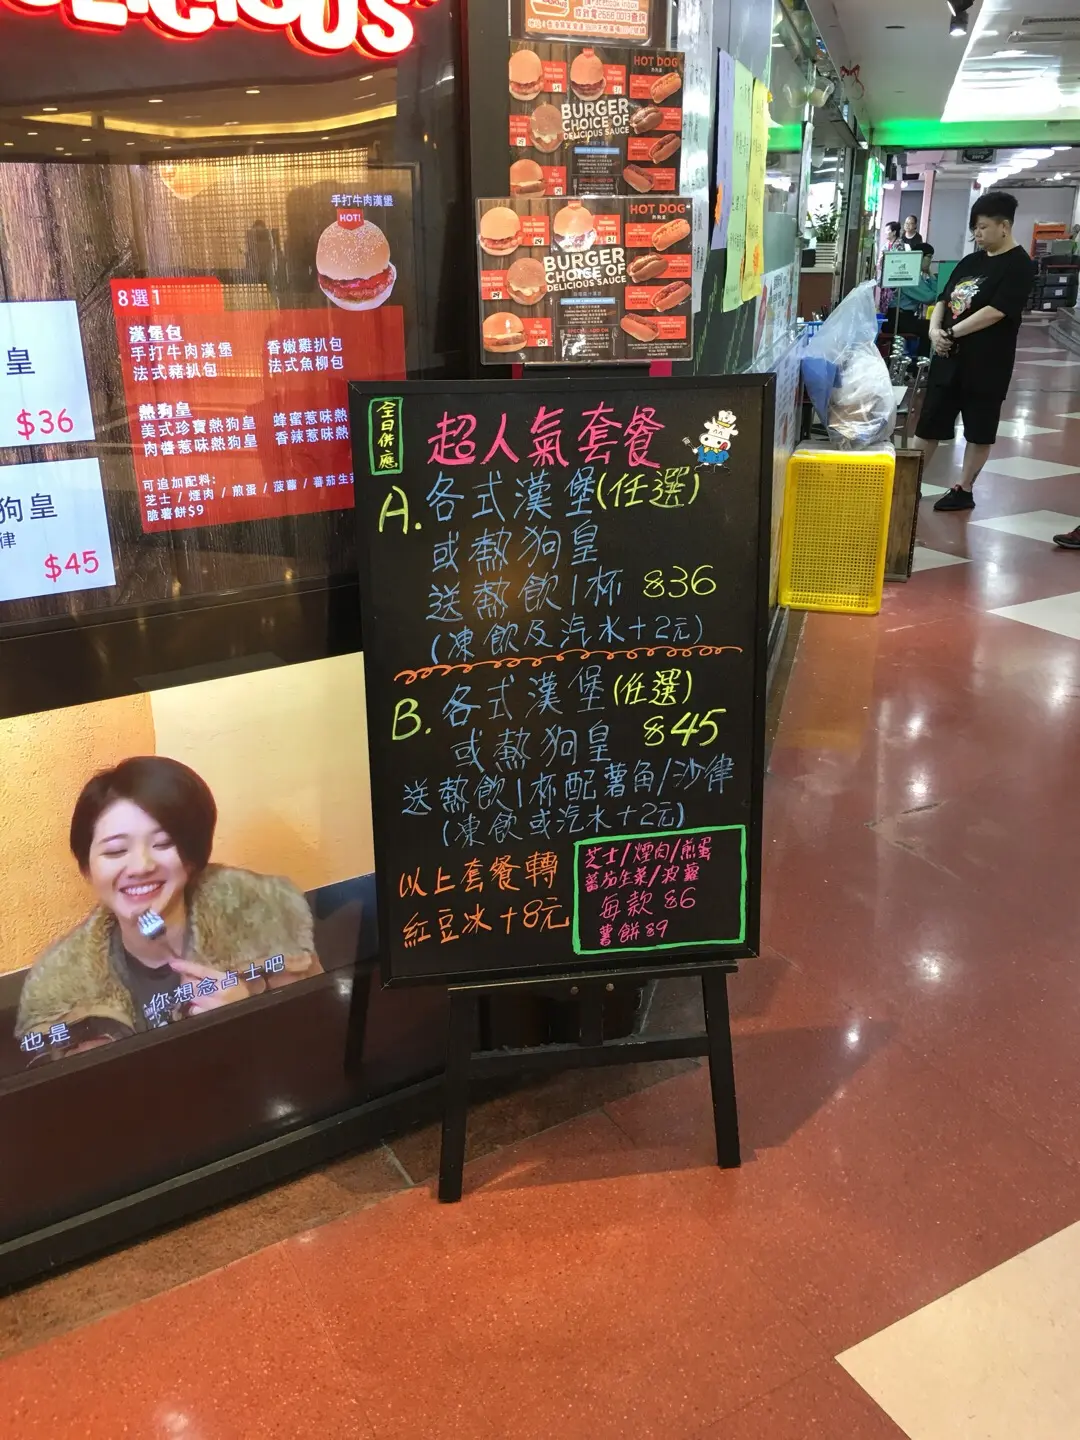 手打牛肉漢堡
HOT!
8選1
漢堡包
手打牛肉漢堡 香嫩雞扒包
法式豬扒包 法式魚柳包
熱狗皇
美式珍寶熱狗皇 蜂蜜惹味熱
肉醬惹味熱狗皇 香辣惹味熱
可追加配料:
芝士 / 煙肉 / 煎蛋 / 菠蘿 / 蕃茄生菜
脆薯餅$9
皇
$36
狗皇
律
$45
也是
你想念占士吧
HOT DOG
BURGER
CHOICE OF
DELICIOUS SAUCE
HOT DOG
BURGER
CHOICE OF
DELICIOUS SAUCE
全日供應
超人氣套餐
A. 各式漢堡(任選)
或熱狗皇
送熱飲1杯 $36
(凍飲及汽水+2元)
B. 各式漢堡(任選)
或熱狗皇 $45
送熱飲1杯配薯角/沙律
(凍飲或汽水+2元)
以上套餐轉
紅豆冰+8元
芝士/煙肉/煎蛋
蕃茄生菜/波蘿
每款 $6
薯餅 $9